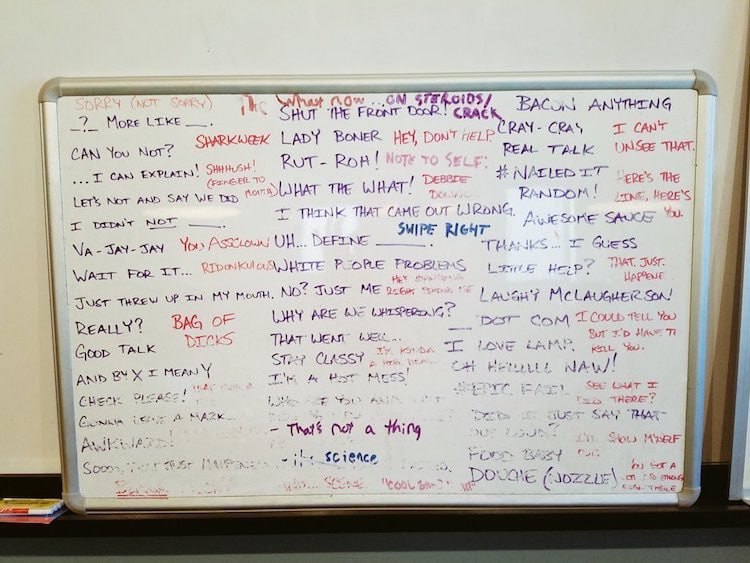 SORRY (NOT SORRY)
_?_ MORE LIKE ___.
SHARKWEEK
CAN YOU NOT?
...I CAN EXPLAIN!
SHHHUSH!
(FINGER TO MOUTH)
LET'S NOT AND SAY WE DID
I DIDN'T NOT ___.
VA-JAY-JAY
YOU ASSCLOWN
WAIT FOR IT...
RIDONKULOUS
JUST THREW UP IN MY MOUTH.
REALLY?
BAG OF
DICKS
GOOD TALK
AND BY X I MEAN Y
CHECK PLEASE!
GONNA LEAVE A MARK...
AWKWARD!
SOOOO, THAT JUST HAPPENED
The What now
...ON STEROIDS/
CRACK
SHUT THE FRONT DOOR!
LADY BONER
HEY, DON'T HELP.
RUT-ROH!
NOTE TO SELF:
WHAT THE WHAT!
DEBBIE
DOWNER
I THINK THAT CAME OUT WRONG.
SWIPE RIGHT
UH... DEFINE ___.
WHITE PEOPLE PROBLEMS
HEY STANDING
RIGHT BEHIND ME
NO? JUST ME
WHY ARE WE WHISPERING?
THAT WENT WELL...
STAY CLASSY
I'M KINDA
A BIG DEAL
I'M A HOT MESS!
- That's not a thing
science
SCENE
BACON ANYTHING
CRAY-CRAY
I CAN'T
UNSEE THAT.
REAL TALK
#NAILED IT
HERE'S THE
LINE, HERE'S
YOU.
RANDOM!
AWESOME SAUCE
THANKS... I GUESS
LITTLE HELP?
THAT. JUST.
HAPPENE
LAUGHY MCLAUGHERSON!
__ DOT COM
I COULD TELL YOU
BUT I'D HAVE T
KILL YOU.
I LOVE LAMP.
OH HELLLLL NAW!
#EPIC FAIL
SEE WHAT I
DID THERE?
DID I JUST SAY THAT
OUT LOUD?
I'LL SHOW MYSELF
OUT.
FOOD BABY
DOUCHE (NOZZLE)
YOU GOT A